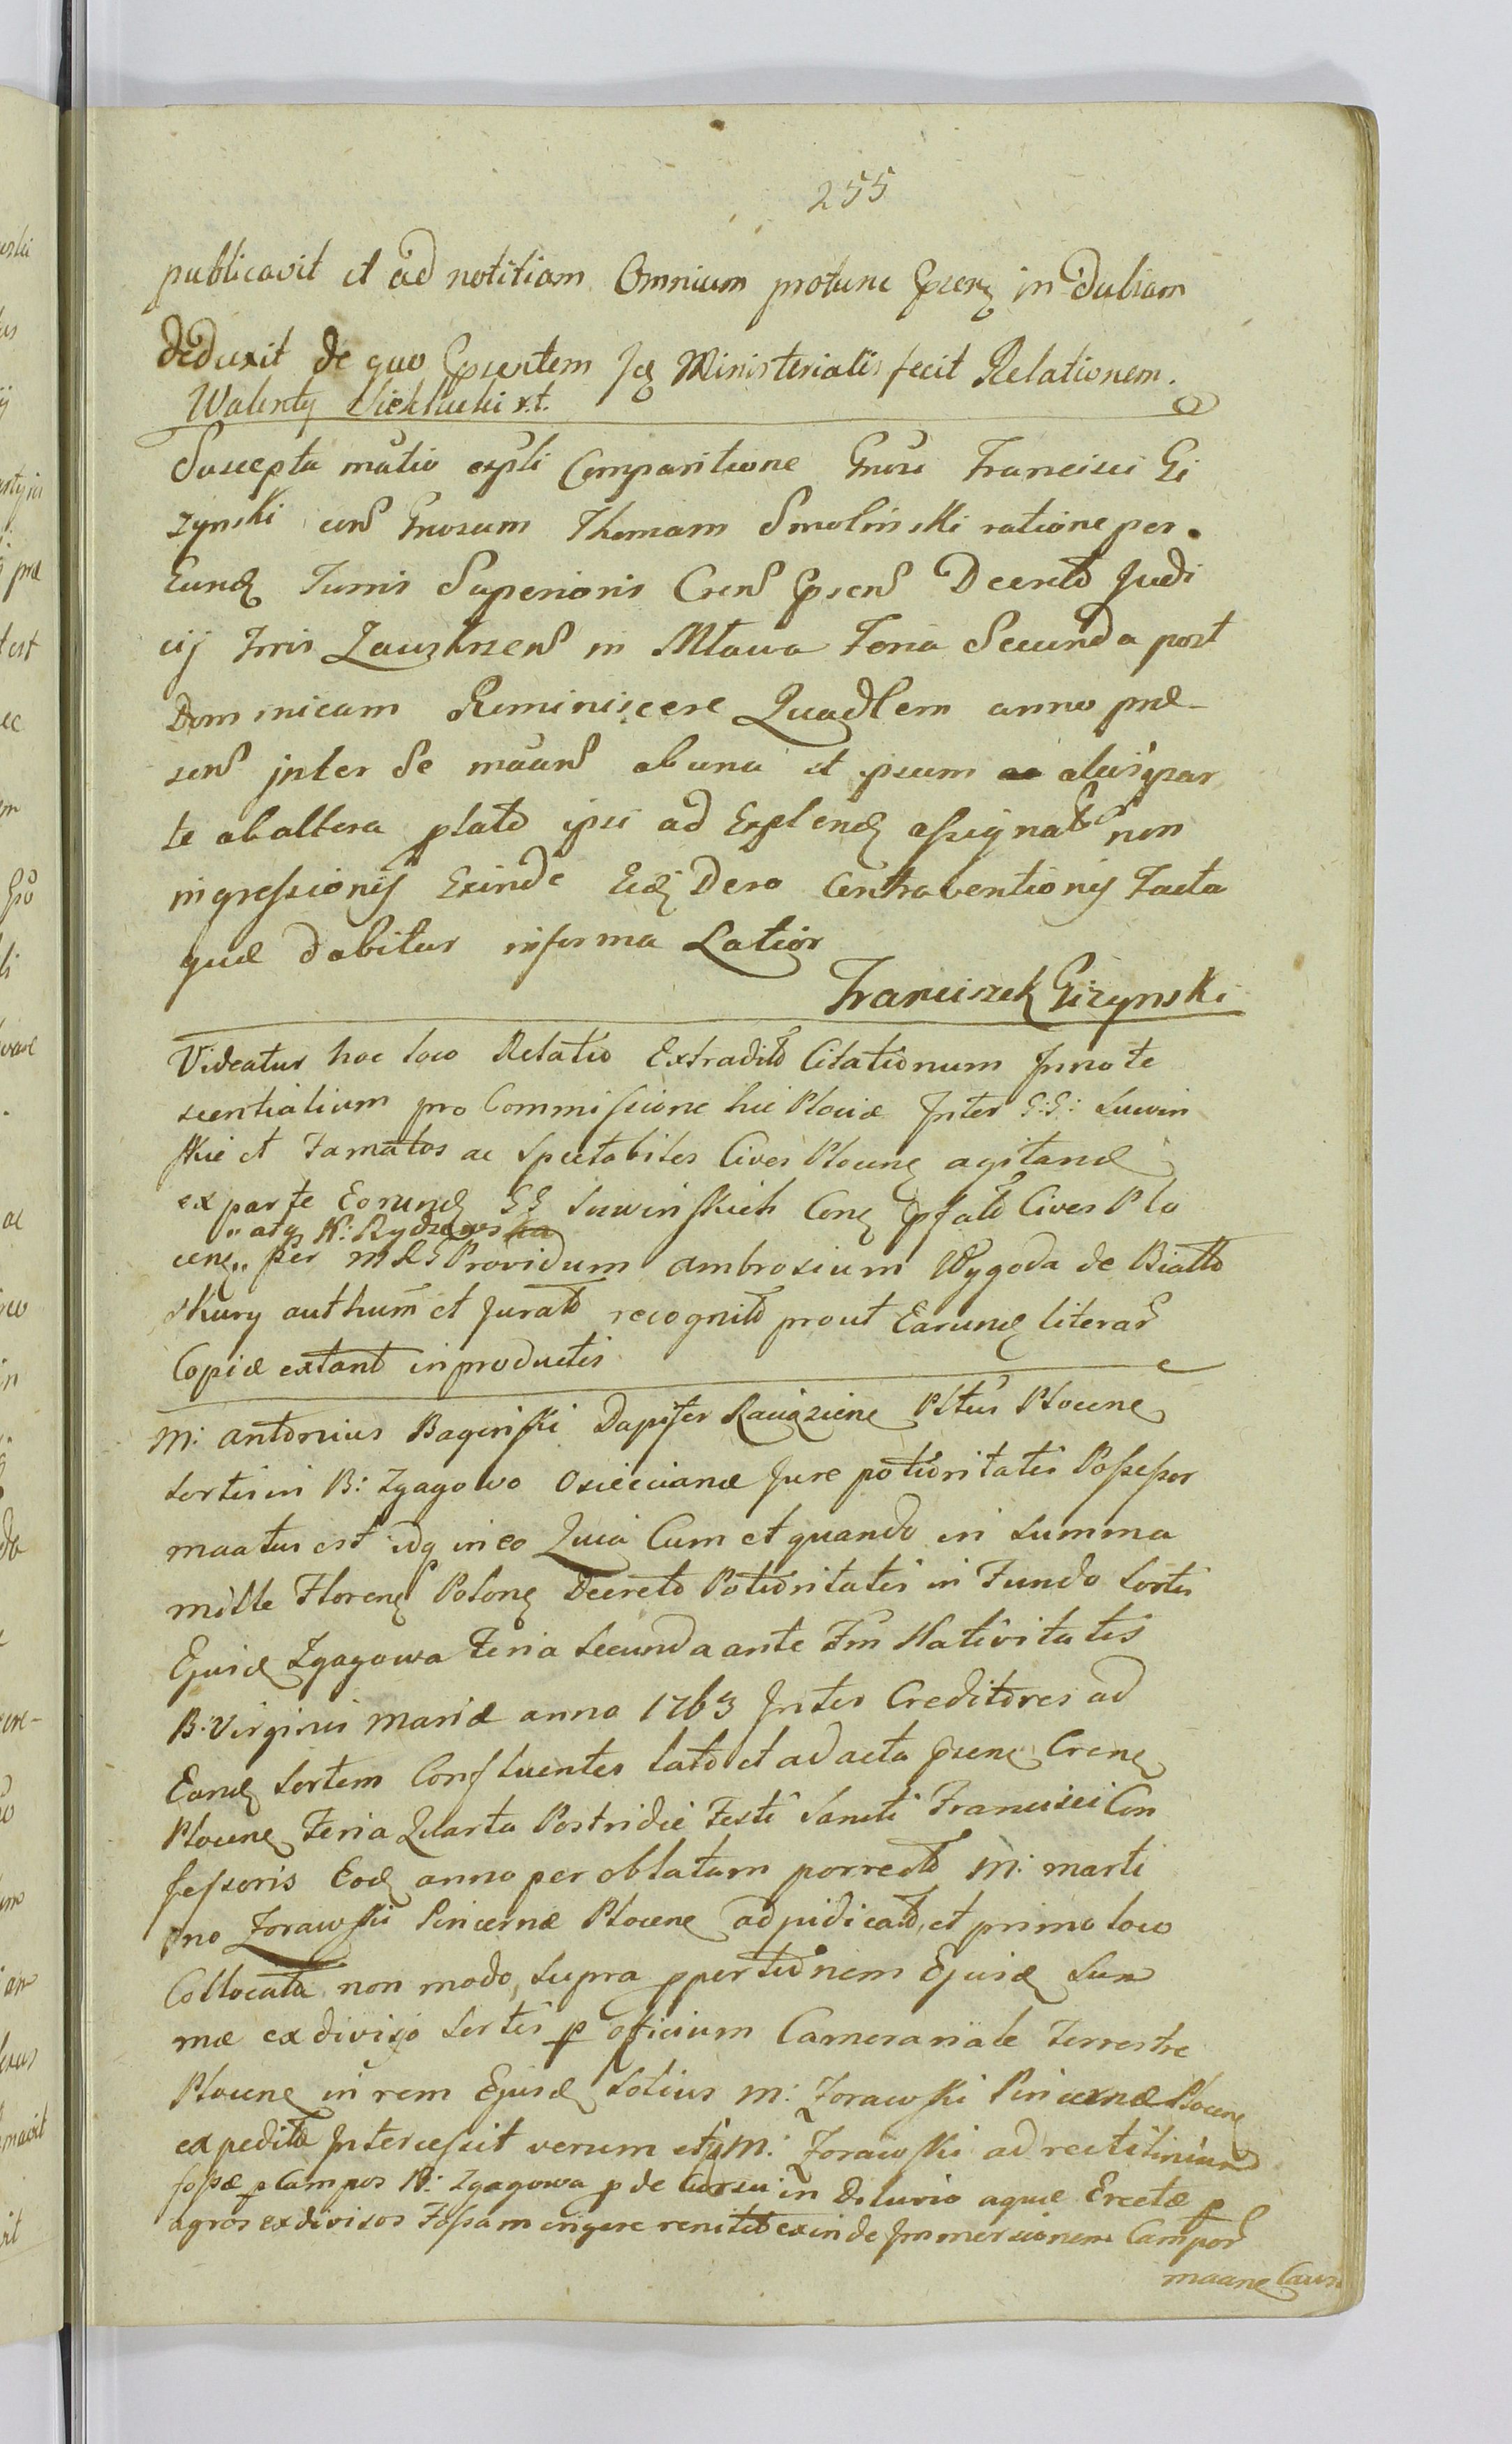 255
publicavit et ad notitiam Omnium protunc Psen in dubiam
deduxit de quo Psentem Ministerialis fecit Relationem.
Walenty x.t.
Suscepta mutio expli Comparitione Gnosi Francisci Gi
zynski cons Gnosum Thomam Smolinski ratione per
Eund Turris Superioris Crens Psens Decreto Judi
cij Trris Zawskrzens in Mlawa Feria Secunda post
Dominicam Reminiscere Quadlem anno præ-
sens inter se ab una et ipsum alius par
te ab altera plato ipsi ad Explend assignat non
ingressionis Exinde Eid Dero Contraventionis Facta
quæ dabitur in forma Latior
Franciszek Gizynski
Videatur hoc loco Relatio Extradito Citationum Innote
scentialium pro Commissione hic Plociæ Inter G:G: Suwin
skie et Famatos ac Spectabiles Cives Plocen agitand
ex parte Eorund GG Suwinskich Con Pfato Cives Plo
" atq N: Rydzewska
cen " per Providum Ambrosium Wygoda de Biatto
skury authum et Jurato recognito prout Earund literar
Copiæ extant in productis
M: Antonius Baginski Dapifer Raciązien Pltus Plocen
Sortis in B: Zgagowo Osiecciana Jure potioritatis Possessor
maatus est idq in eo Quia Cum et quando in Summa
mille Floren Polon Decreto Potioritatis in Fundo Sortis
Ejusd Zgagowa Feria Secunda ante Fm Nativitatis
B: Virginis Mariæ anno 1763 Inter Creditores ad
Eand Sortem Confluentes lato et ad acta Psen Cren
Plocen Feria Quarta Postridie Festi Sancti Francisci Con
fessoris Eod anno per oblatam porrecto M: Marti
no Zorawski Pincernæ Plocen adjudicato, et primo loco
Collocata non modo supra ppertionem Ejusd Sum
mæ ex diviso Sortis p officium Camerariale Terrestre
Plocen in rem Ejusd Solius M: Zorawski Pincernæ Plocen
expedita Intercessit verum M: Zorawski ad rectilinium
fossæ p Campos B: Zgagowa p de Cursu in Diluvio aquæ Erectæ p
agros exdivisos Fossam erigere renitet exinde Immersionem Campor
maane Caus